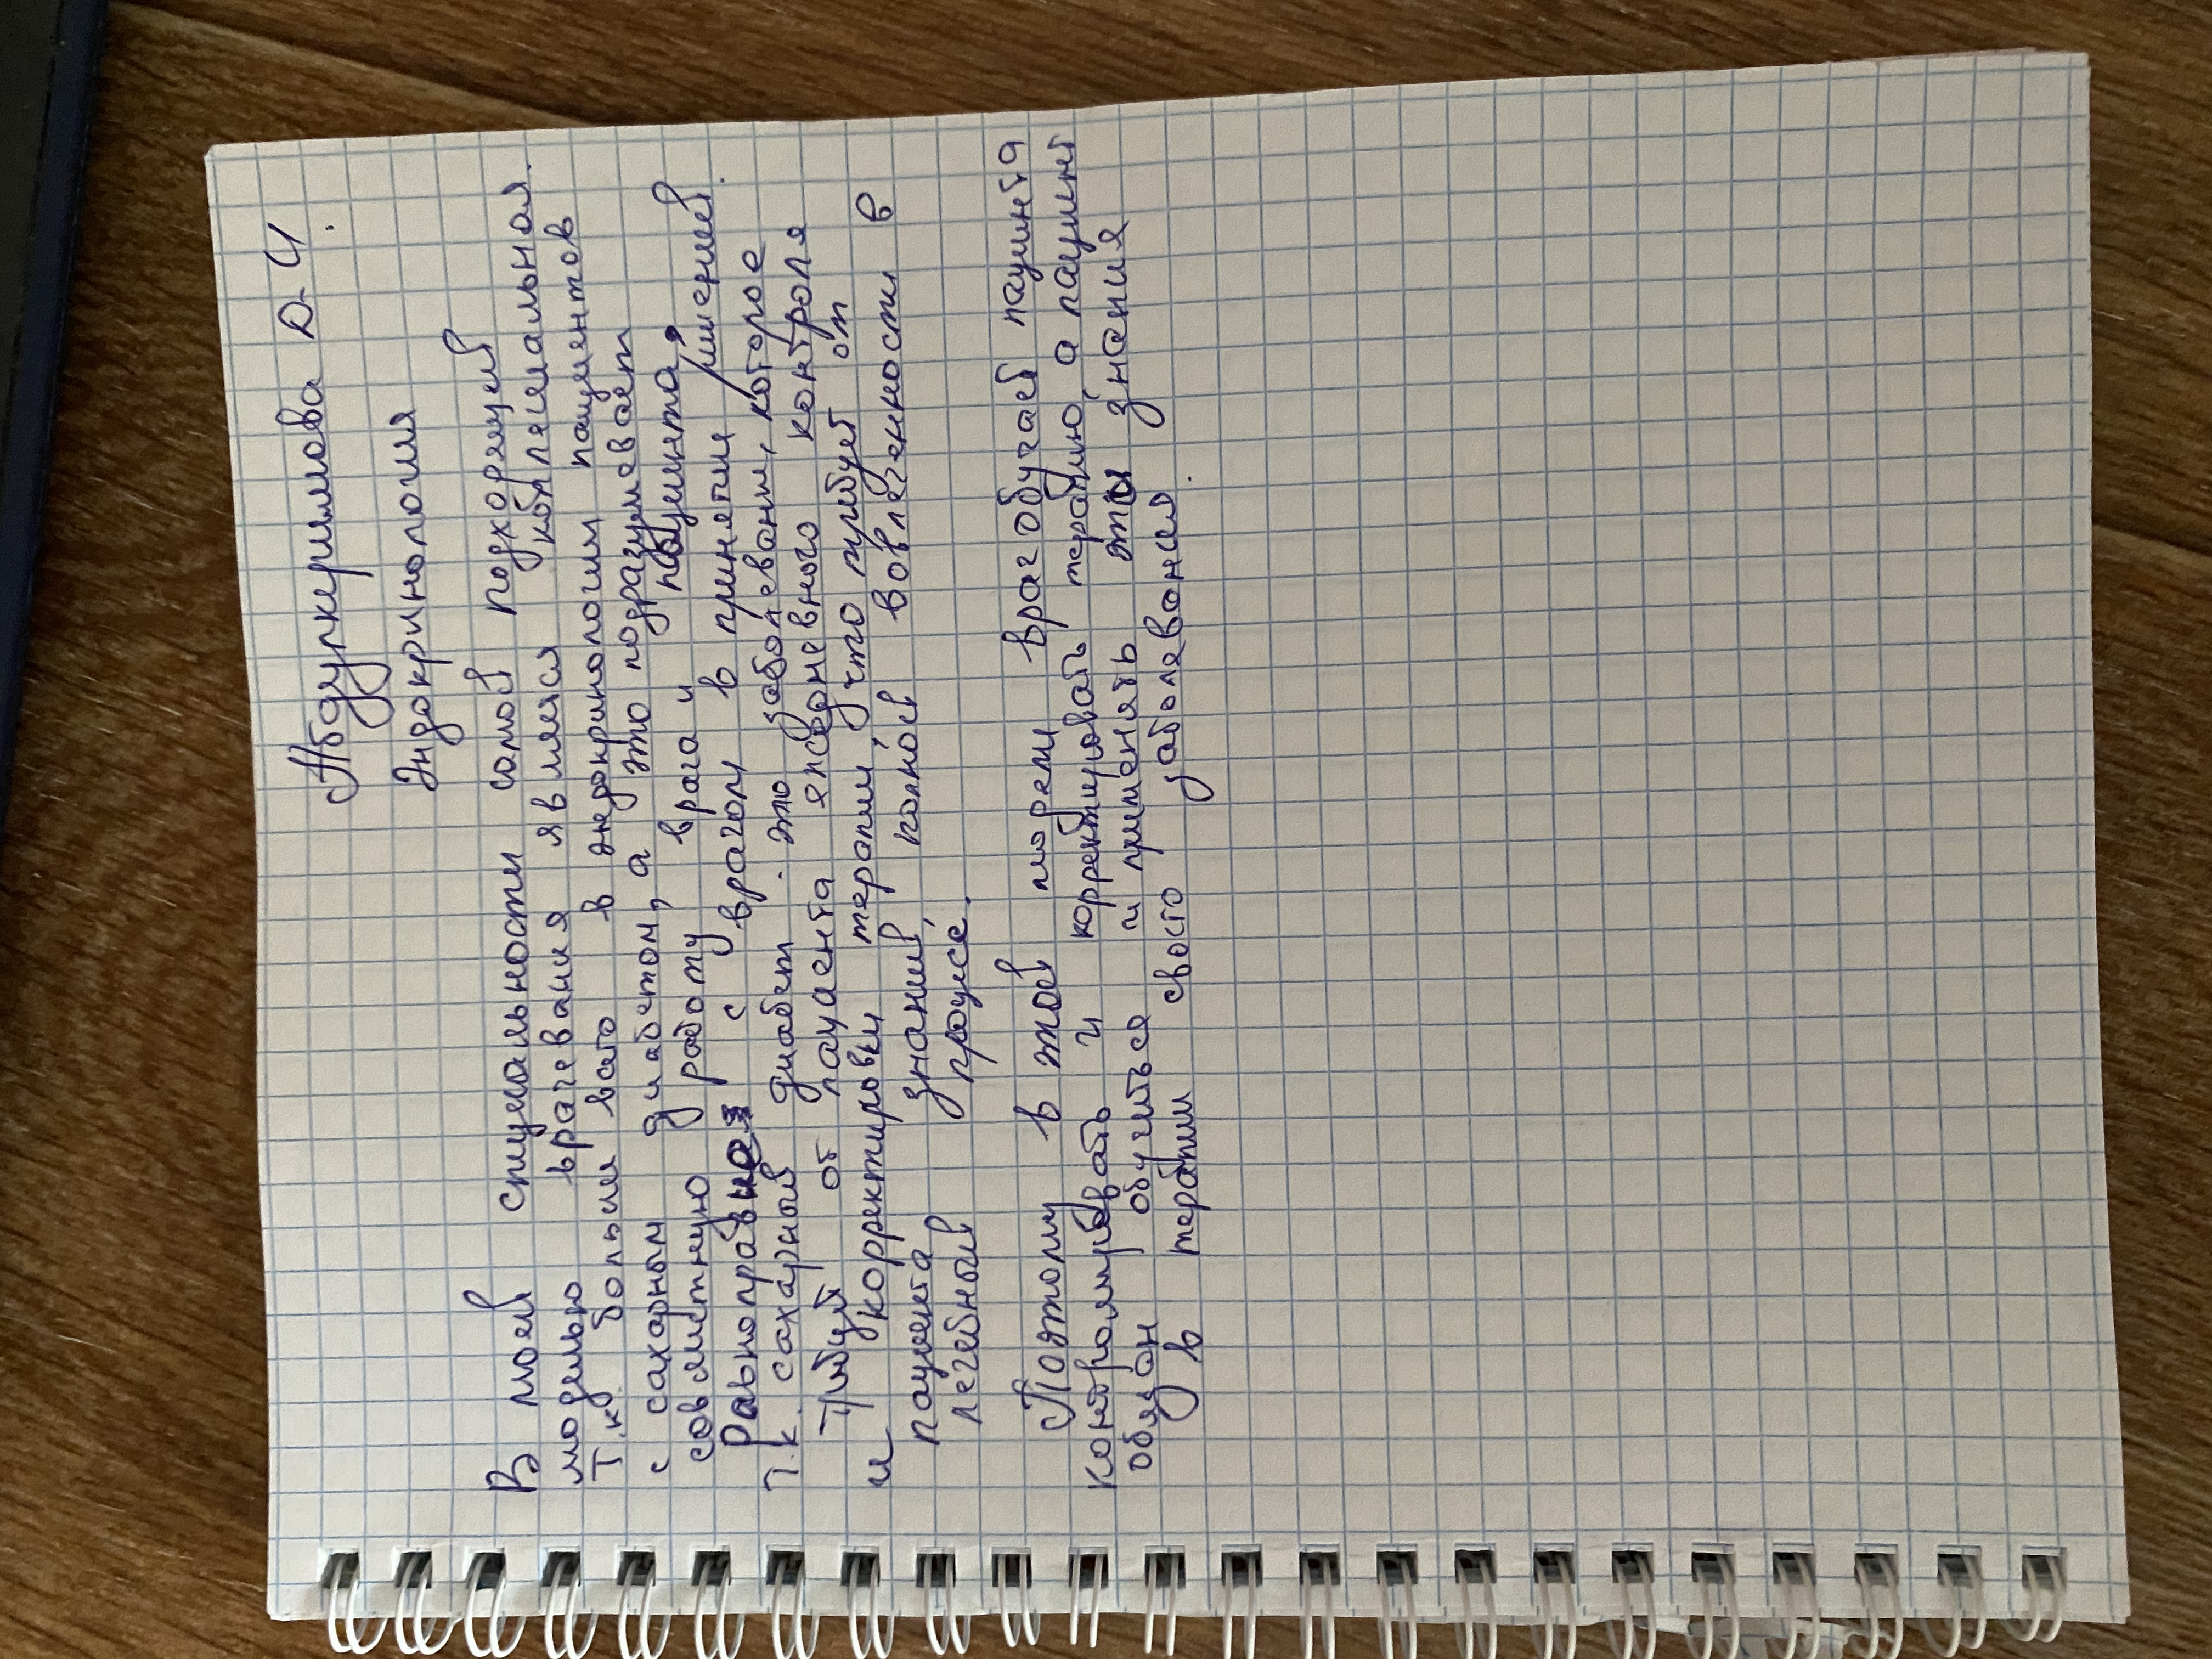 Абдулкеримова Д-И.
Эндокринология
В моей специальности самой подходящей
моделью врачевания является коллегиальная.
Т.к. больше всего в эндокринологии пациентов
с сахарным диабетом, а это подразумевает
совместную работу врача и пациента,
Равноправная с врачом в принятии решений.
Т.к. сахарный диабет - это заболевании, которое
требует от пациента ежедневного контроля
и корректировки терапии, что требует от
пациента знаний, полной вовлеченности в
лечебный процесс.
Поэтому в этой модели врач обучает пациента
контролировать и корректировать терапию, а пациент
обязан обучиться и применять эти знания
в терапии своего заболевания.